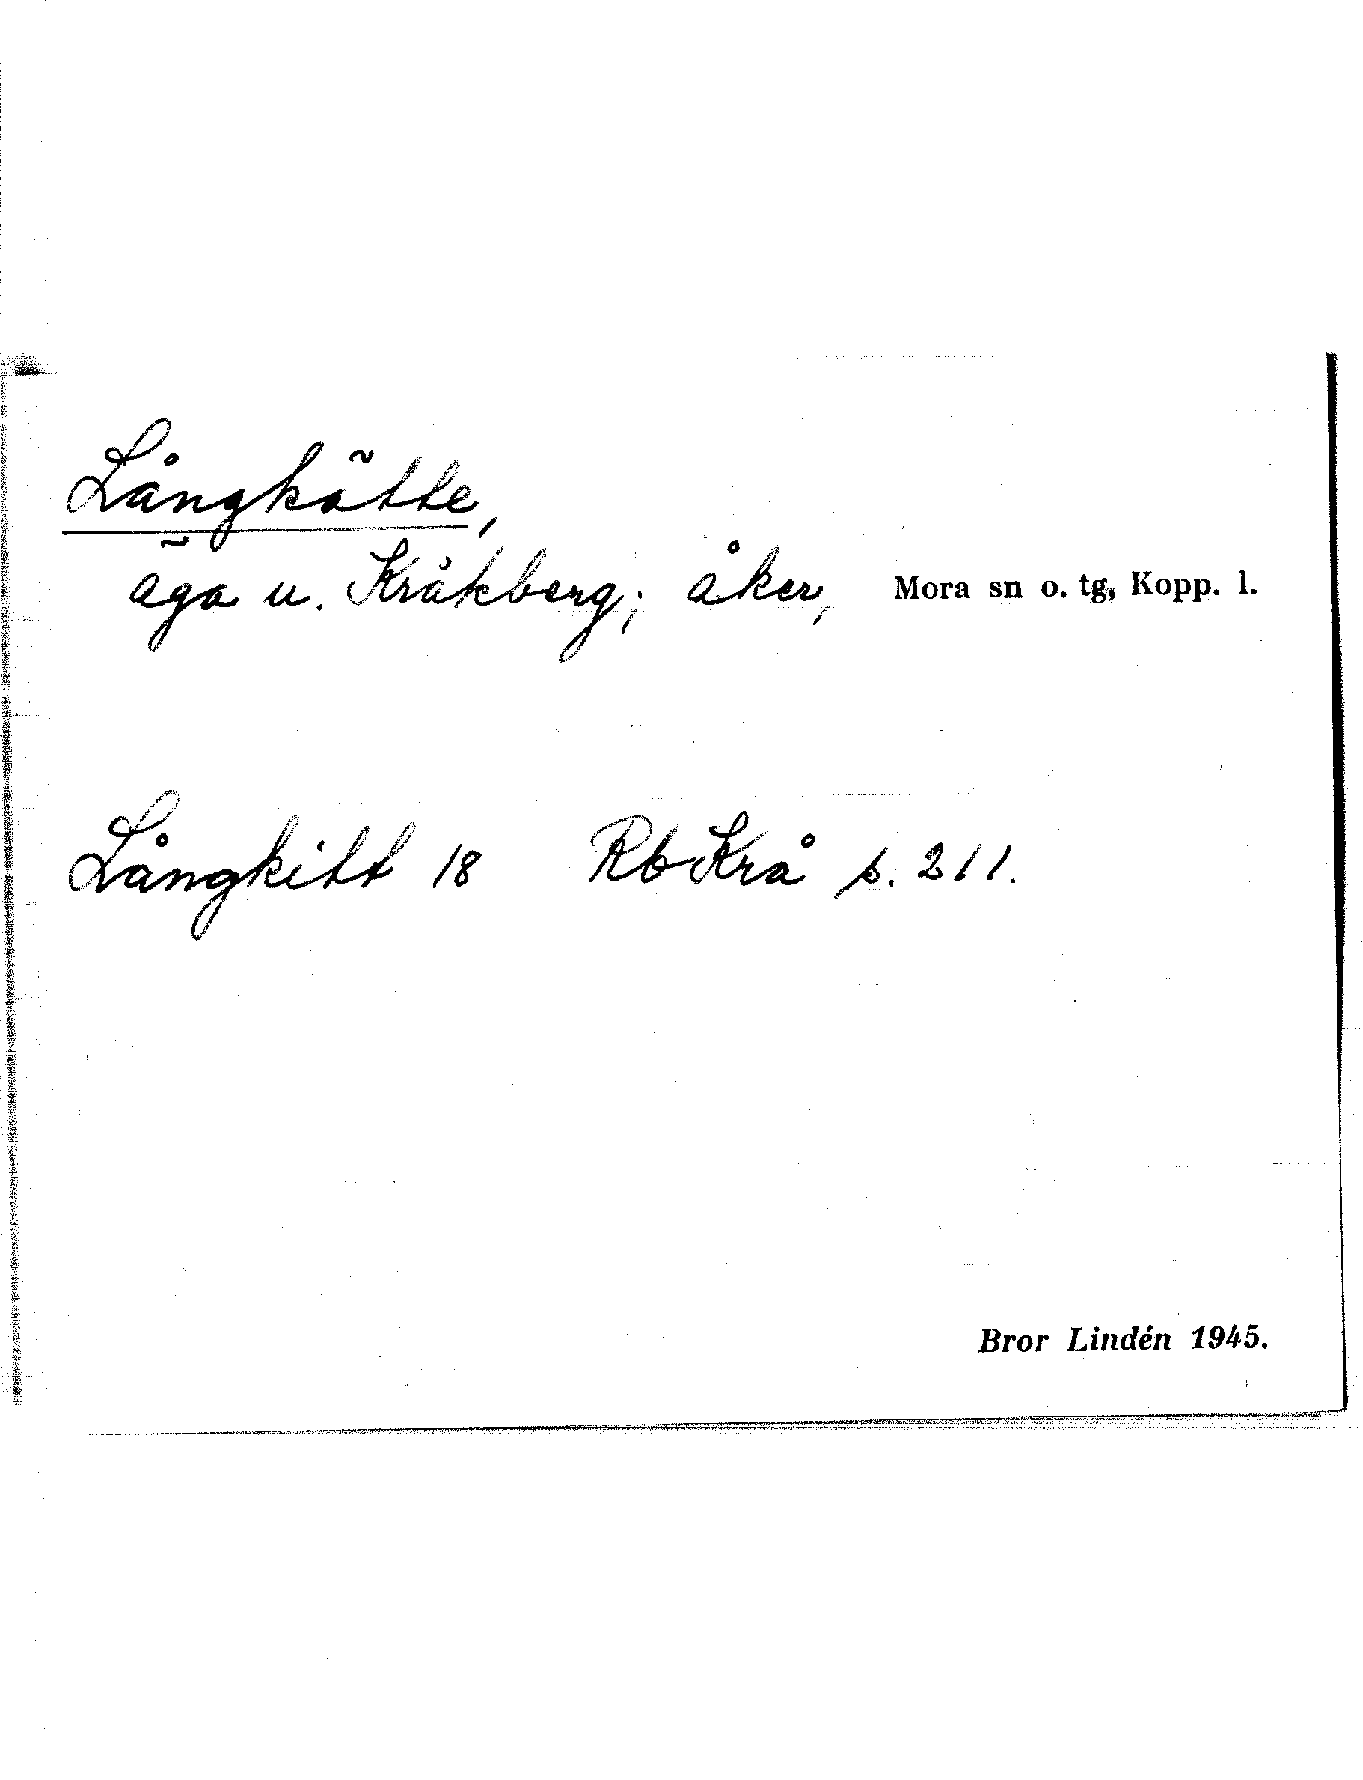 Långkätte,
äga u. Kråkberg; åker, Mora sn o. tg, Kopp. l.
Långkitt 18 RbKrå s. 211.
Bror Lindén 1945.